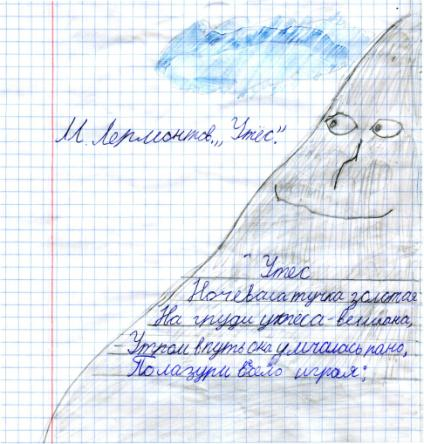 М. Лермонтов „Утес".
Утес
Ночевала тучка золотая
На груди утеса-великана,
Утром в путь она умчалась рано,
По лазури весело играя;